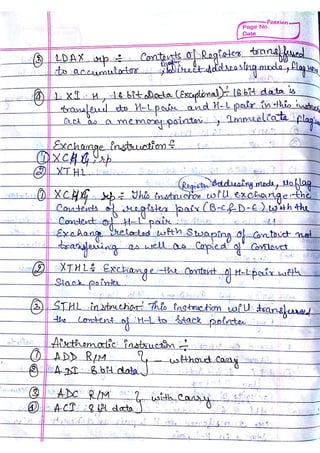 Passion
Page No.
Date
③ LDAX rp ÷ Contents of Register transffered
to accumulator, Indirect Addressing mode, Flag
④ LXI H, 16 bit Data (Exceptional) ÷ 16 bit data is
transferd to H-L pair and H-L pair in this
act as a memory pointer, Immediate
Exchange instruction ÷
① XCHG rp
② XTHL
Register Addresing mode, No flag
① XCHG rp ÷ This instruction will exchange the
Contents of register pair (B-C & D-E) with the
Content of H-L pair
Exchange related with Swaping of Content not
transfering as well as Copied of Content
② XTHL ÷ Exchange the Content of H-L pair with
Stack pointer
③ STHL instruction ÷ This instruction will transfered
the content of H-L to Stack pointer
Airthematic instruction ÷
① ADD R/M
② ADI 8 bit data } — without carry
③ ADC R/M
④ ACI 8 bit data } — with Carry